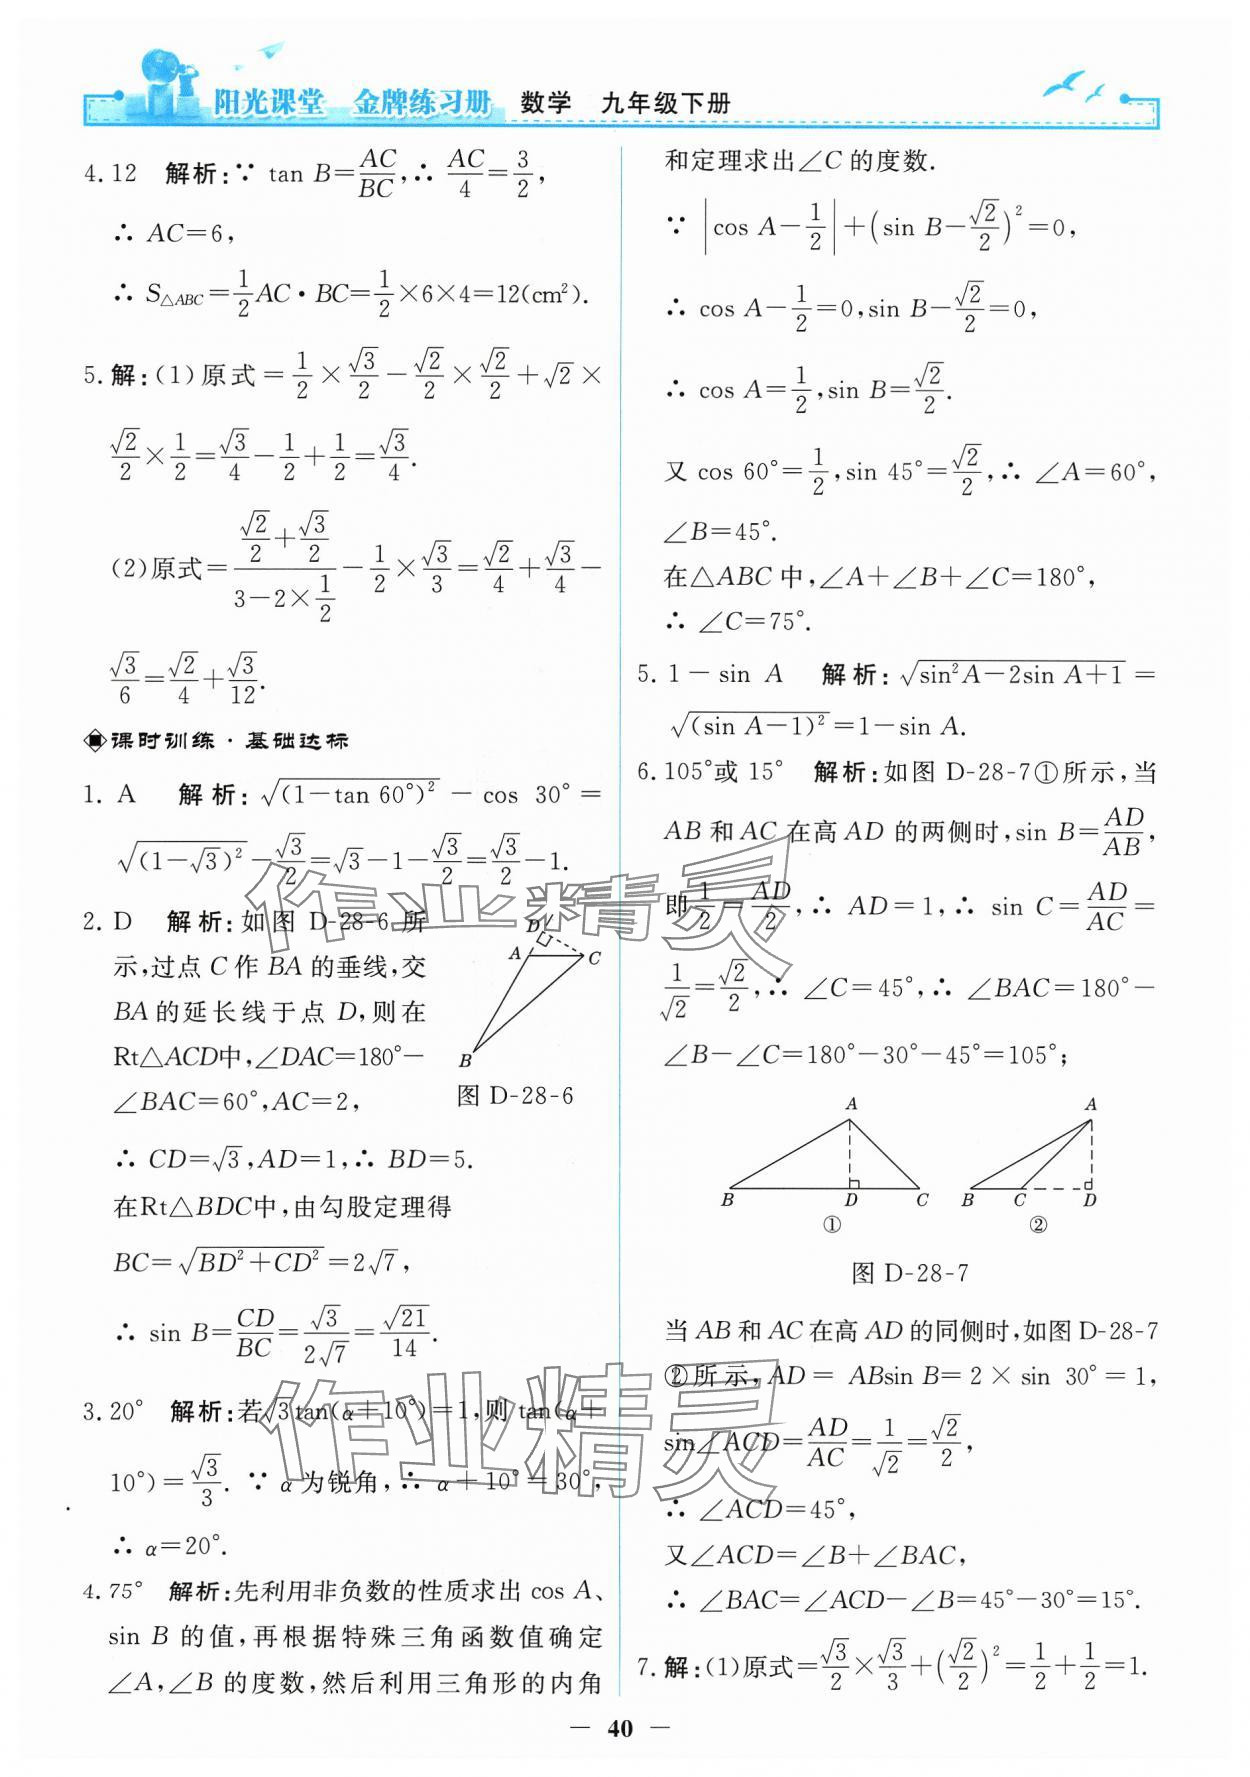 阳光课堂 金牌练习册 数学 九年级下册
4. 12 解析:∵ tan B=AC/BC,∴ AC/4=3/2,
∴ AC=6,
∴ S△ABC=1/2AC·BC=1/2×6×4=12(cm²).
5. 解:(1)原式=1/2×√3/2-√2/2×√2/2+√2×
√2/2×1/2=√3/4-1/2+1/2=√3/4.
(2)原式=(√2/2+√3/2)/(3-2×1/2)-1/2×√3/3=√2/4+√3/4-
√3/6=√2/4+√3/12.
课时训练·基础达标
1. A 解析:√((1-tan 60°)²)-cos 30°=
√((1-√3)²)-√3/2=√3-1-√3/2=√3/2-1.
2. D 解析:如图 D-28-6 所
示,过点 C 作 BA 的垂线,交
BA 的延长线于点 D,则在
Rt△ACD中,∠DAC=180°-
∠BAC=60°,AC=2,
D
A
C
B
图 D-28-6
∴ CD=√3,AD=1,∴ BD=5.
在Rt△BDC中,由勾股定理得
BC=√(BD²+CD²)=2√7,
∴ sin B=CD/BC=√3/(2√7)=√21/14.
3. 20° 解析:若√3tan(α+10°)=1,则 tan(α+
10°)=√3/3. ∵ α 为锐角,∴ α+10°=30°,
∴ α=20°.
4. 75° 解析:先利用非负数的性质求出 cos A、
sin B 的值,再根据特殊三角函数值确定
∠A,∠B 的度数,然后利用三角形的内角
和定理求出∠C 的度数.
∵ |cos A-1/2|+(sin B-√2/2)²=0,
∴ cos A-1/2=0,sin B-√2/2=0,
∴ cos A=1/2,sin B=√2/2.
又 cos 60°=1/2,sin 45°=√2/2,∴ ∠A=60°,
∠B=45°.
在△ABC 中,∠A+∠B+∠C=180°,
∴ ∠C=75°.
5. 1-sin A 解析:√(sin²A-2sin A+1)=
√((sin A-1)²)=1-sin A.
6. 105°或 15° 解析:如图 D-28-7①所示,当
AB 和 AC 在高 AD 的两侧时,sin B=AD/AB,
即1/2=AD/2,∴ AD=1,∴ sin C=AD/AC=
1/√2=√2/2,∴ ∠C=45°,∴ ∠BAC=180°-
∠B-∠C=180°-30°-45°=105°;
A A
B D C B C D
① ②
图 D-28-7
当 AB 和 AC 在高 AD 的同侧时,如图 D-28-7
②所示,AD= ABsin B=2×sin 30°=1,
sin∠ACD=AD/AC=1/√2=√2/2,
∴ ∠ACD=45°,
又∠ACD=∠B+∠BAC,
∴ ∠BAC=∠ACD-∠B=45°-30°=15°.
7. 解:(1)原式=√3/2×√3/3+(√2/2)²=1/2+1/2=1.
— 40 —
作业精灵
作业精灵